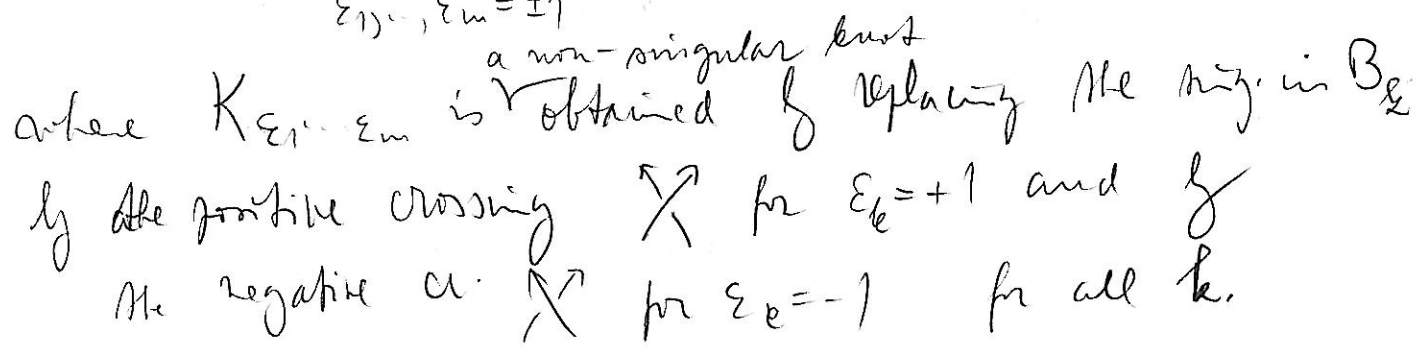 ε₁, ..., εₘ = ±1
a non-singular knot
where K_{ε₁...εₘ} is √ obtained by replacing the sing. in B_k
by the positive crossing for ε_k = +1 and by
the negative cr. for ε_k = -1 for all k.